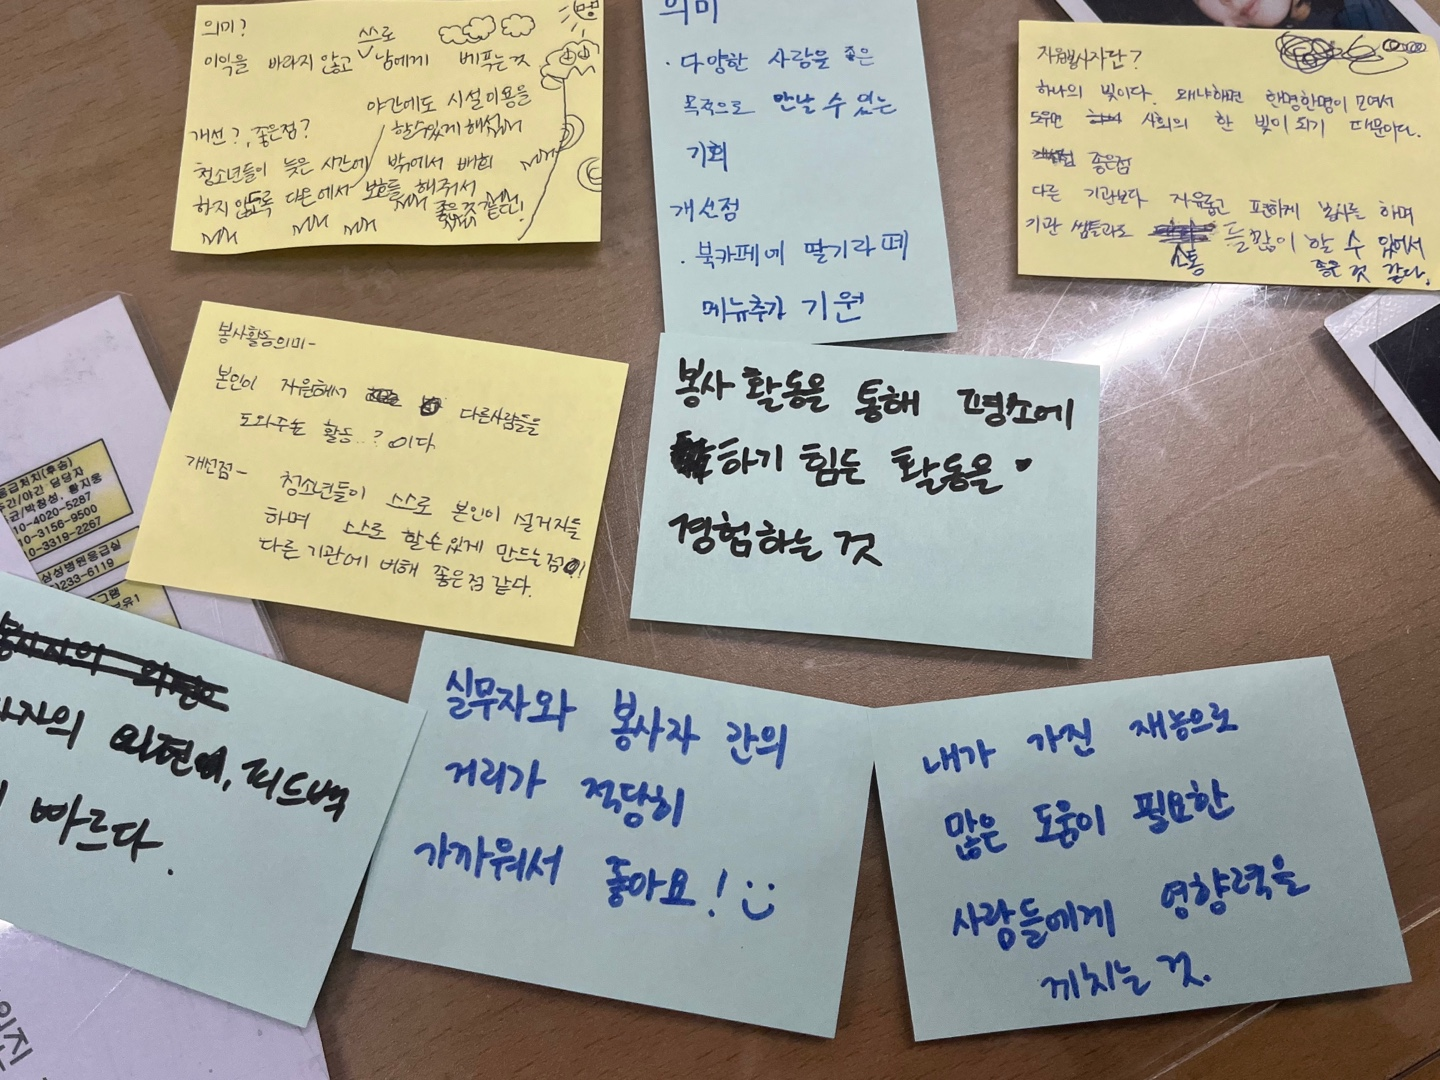 의미?
이익을 바라지 않고 스스로 남에게 베푸는것
야간에도 시설이용을
할수있게 해줘서
개선?, 좋은점?
청소년들이 늦은 시간에 밖에서 배회
하지 않도록 다온에서 보호를 해줘서
좋은것 같다!
의미
· 다양한 사람을 좋은
목적으로 만날 수 있는
기회
개선점
· 북카페에 딸기라떼
메뉴추가 기원
자원봉사자단?
하나의 빛이다. 왜냐하면 한명한명이 모여서
도우면 사회의 한 빛이 되기 때문이다.
좋은점
다른 기관보다 자유롭고 편하게 봉사를 하며
기관 쌤들과도 소통 를많이 할 수 있어서
좋은 것 같다.
봉사활동의미-
본인이 자원해서 다른사람들을
도와주는 활동..? 이다
개선점- 청소년들이 스스로 본인이 설거지를
하며 스스로 할수있게 만드는점이
다른 기관에 비해 좋은점 같다.
봉사 활동을 통해 평소에
하기 힘든 활동을
경험하는 것
응급처치(후송)
주간/야간 담당자
균/박창성, 황지웅
10-4020-5287
10-3156-9500
10-3319-2267
삼성병원응급실
)233-6119
그램
보유1
사자의 의견에, 피드백
빠르다.
실무자와 봉사자 간의
거리가 적당히
가까워서 좋아요! :)
내가 가진 재능으로
많은 도움이 필요한
사람들에게 영향력을
끼치는 것.